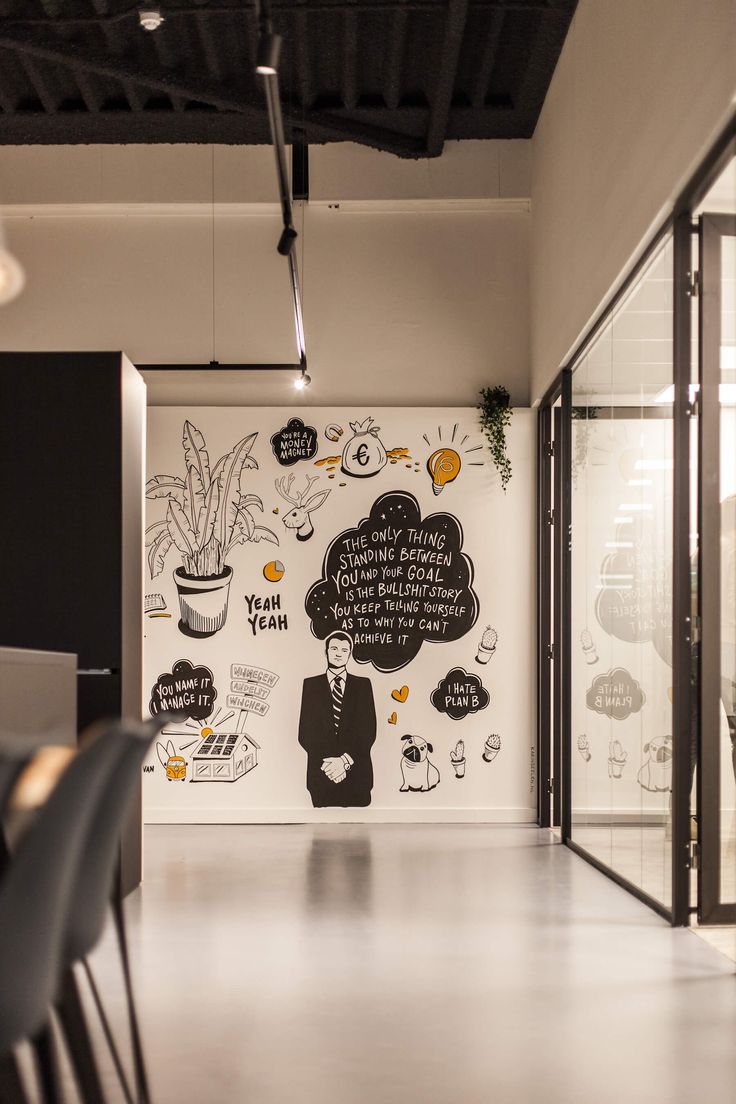 YOU'RE A
MONEY
MAGNET
€
THE ONLY THING
STANDING BETWEEN
YOU AND YOUR GOAL
IS THE BULLSHIT STORY
YOU KEEP TELLING YOURSELF
AS TO WHY YOU CAN'T
ACHIEVE IT
YEAH
YEAH
YOU NAME IT
I MANAGE IT.
NIJMEGEN
ANDELST
WIJCHEN
I HATE
PLAN B
VAN